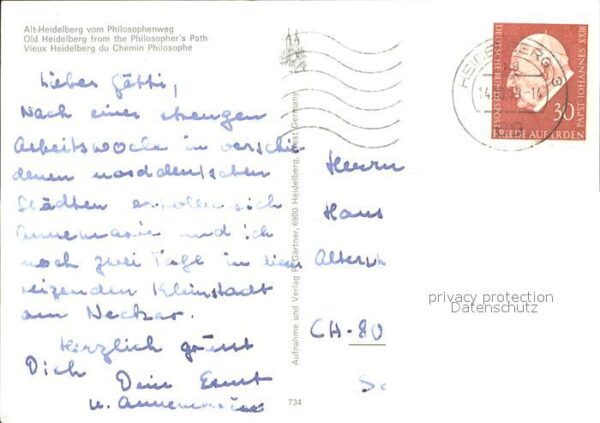 Alt-Heidelberg vom Philosophenweg
Old Heidelberg from the Philosopher's Path
Vieux Heidelberg du Chemin Philosophe
Lieber Götti,
Nach einer strengen
Arbeitswoche in verschie-
denen norddeutschen
Städten erholen sich
Annemarie und ich
noch zwei Tage in diesem
reizenden Kleinstadt
am Neckar.
Herzlich grüsst
Dich Dein Ernst
u. Annemarie
Aufnahme und Verlag Gärtner, 6900 Heidelberg, West Germany
734
HEIDELBERG
30
DEUTSCHE BUNDESPOST
PAPST JOHANNES XXIII
FRIEDE AUF ERDEN
Herrn
Hans
CH-80
privacy protection
Datenschutz